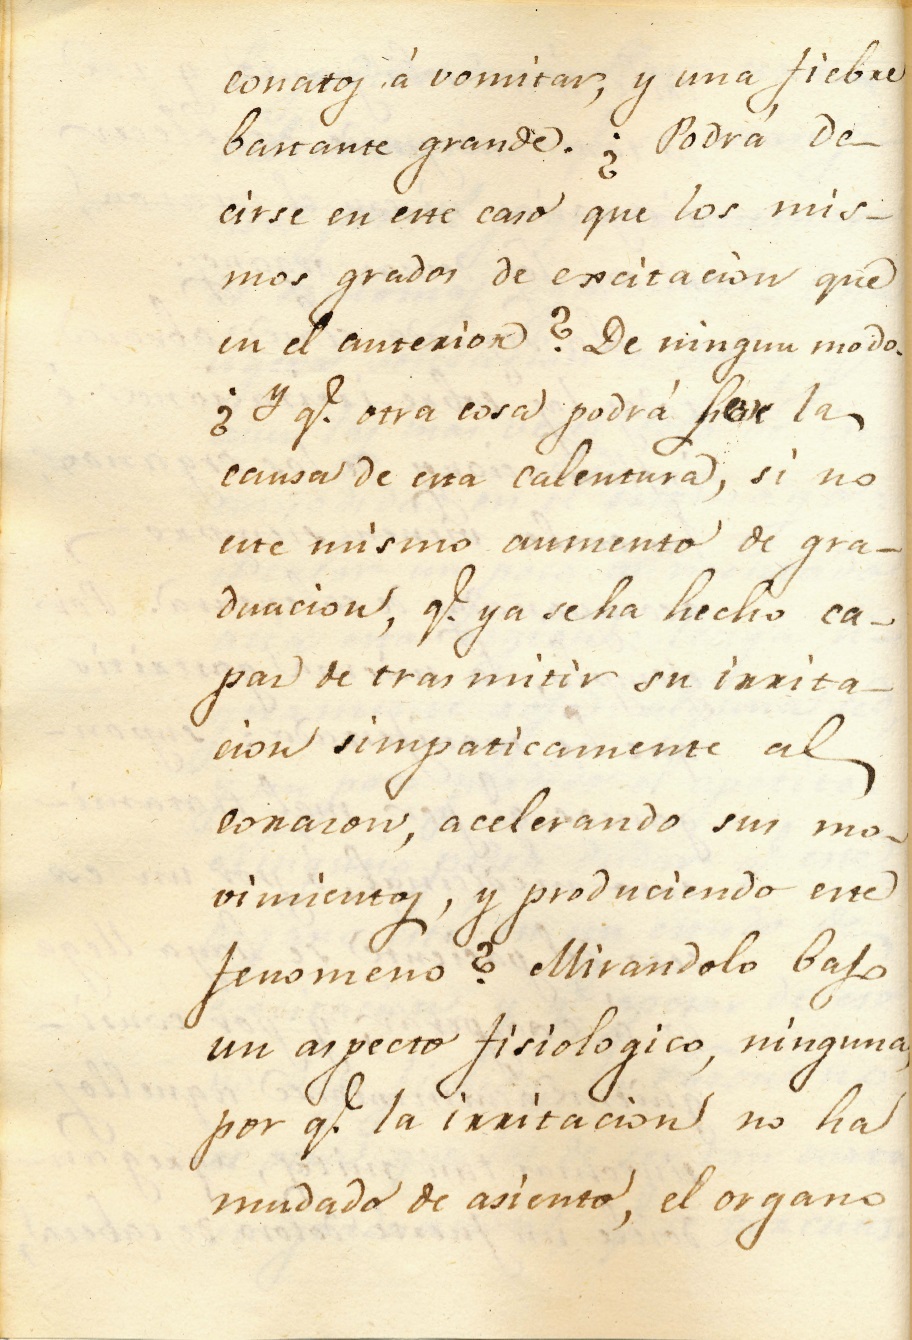 conatos á vomitar, y una fiebre
bastante grande. ¿Podrá de-
cirse en este caso que los mis-
mos grados de excitacion que
en el anterior? De ningun modo.
¿Y q.e otra cosa podrá ser la
causa de esta calentura, si no
este mismo aumento de gra-
duacion, q.e ya se ha hecho ca-
paz de trasmitir su irrita-
cion simpaticamente al
corazon, acelerando sus mo-
vimientos, y produciendo este
fenomeno? Mirandolo bajo
un aspecto fisiologico, ninguna,
por q.e la irritacion no ha
mudado de asiento, el organo